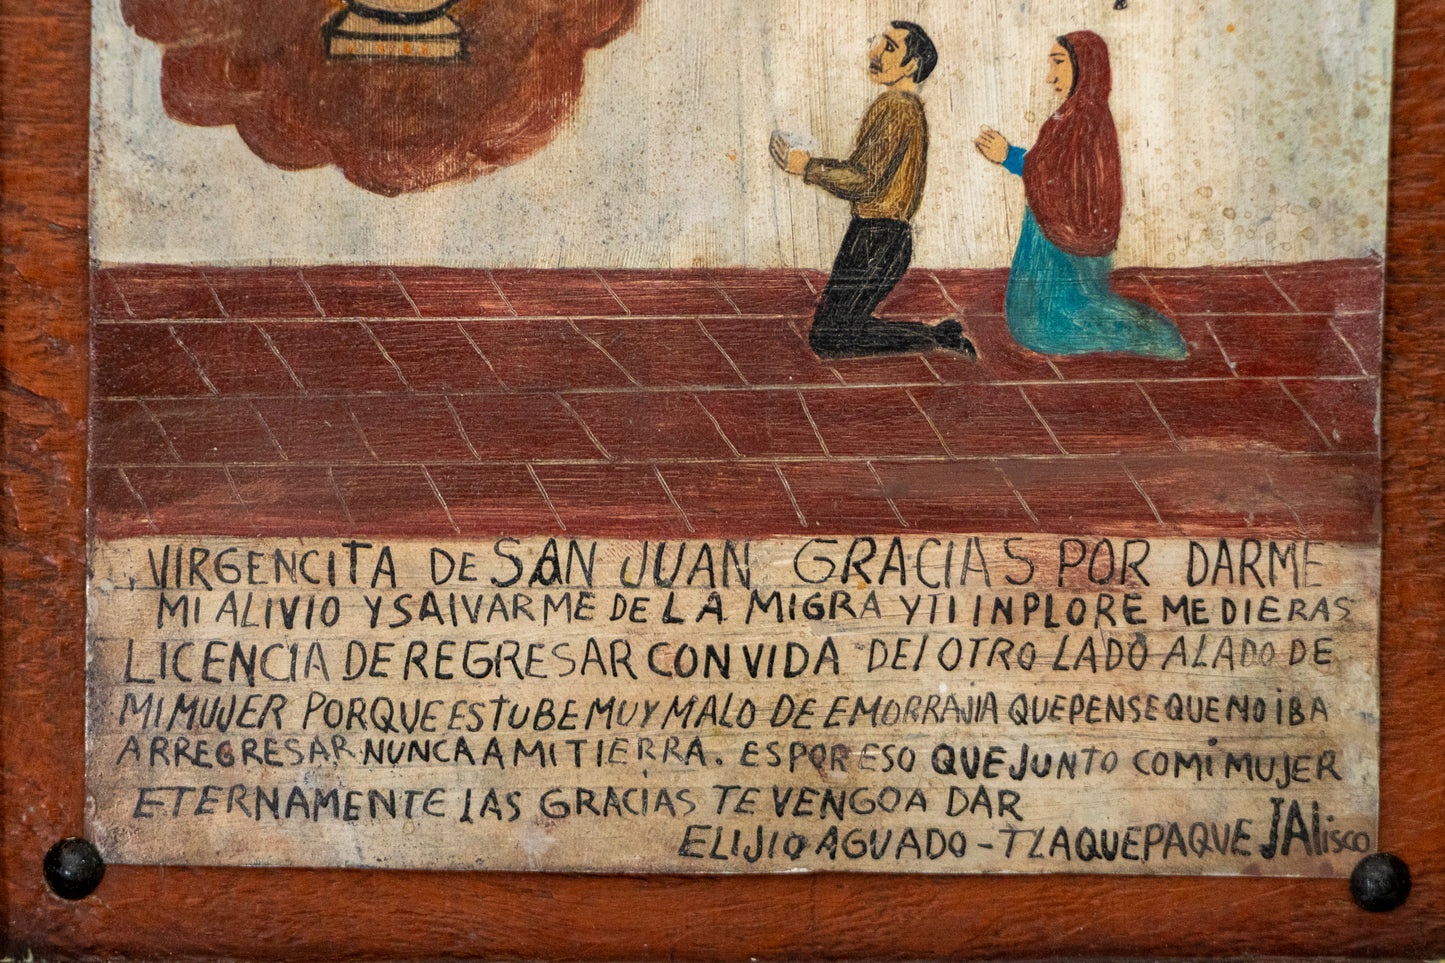 VIRGENCITA DE SAN JUAN GRACIAS POR DARME
MI ALIVIO Y SALVARME DE LA MIGRA Y TI INPLORE ME DIERAS
LICENCIA DE REGRESAR CON VIDA DEL OTRO LADO A LADO DE
MI MUJER PORQUE ESTUBE MUY MALO DE EMORRAJIA QUE PENSE QUE NO iBA
A RREGRESAR NUNCA A MI TIERRA. ES POR ESO QUE JUNTO CO Mi MUJER
ETERNAMENTE LAS GRACIAS TE VENGO A DAR
ELIJIO AGUADO - TLAQUEPAQUE JALisco